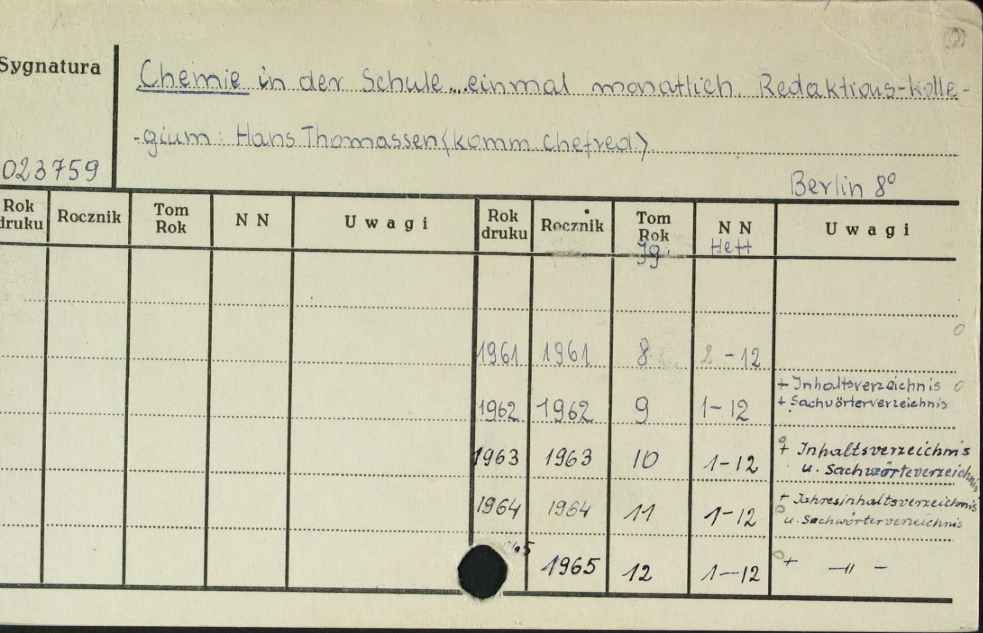 Sygnatura
Chemie in der Schule...einmal monatlich. Redaktions-Kolle-
-gium: Hans Thomassen (komm Chefred.)
023759
Berlin 8°
Rok druku Rocznik Tom Rok N N Uwagi Rok druku Rocznik Tom Rok N N Uwagi
Jg. Heft
1961 1961 8 2-12
+ Inhaltsverzeichnis
1962 1962 9 1-12 + Sachwörterverzeichnis
1963 1963 10 1-12 + Inhaltsverzeichnis
u. Sachwörterverzeichnis
1964 1964 11 1-12 + Jahresinhaltsverzeichnis
u. Sachwörterverzeichnis
1965 12 1-12 + —〃—